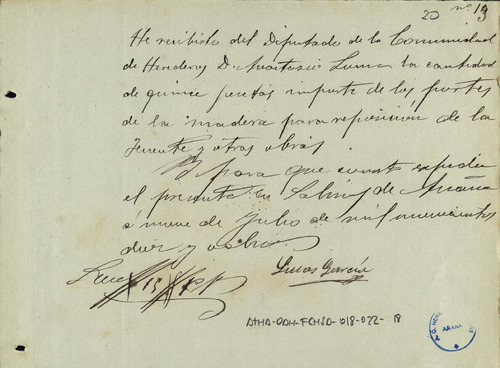 20 nº 19
He recibido del Diputado de la Comunidad
de Herederos D. Anastasio la cantidad
de quince pesetas importe de los portes
de la madera para reposicion de la
fuente y otras obras.
Y para que conste expido
el presente en Salinas de Añana
á nueve de Julio de mil novecientos
diez y ocho
Son 15 pts
Lucas García
ATHA-DAH-FCHSA-018-022-18